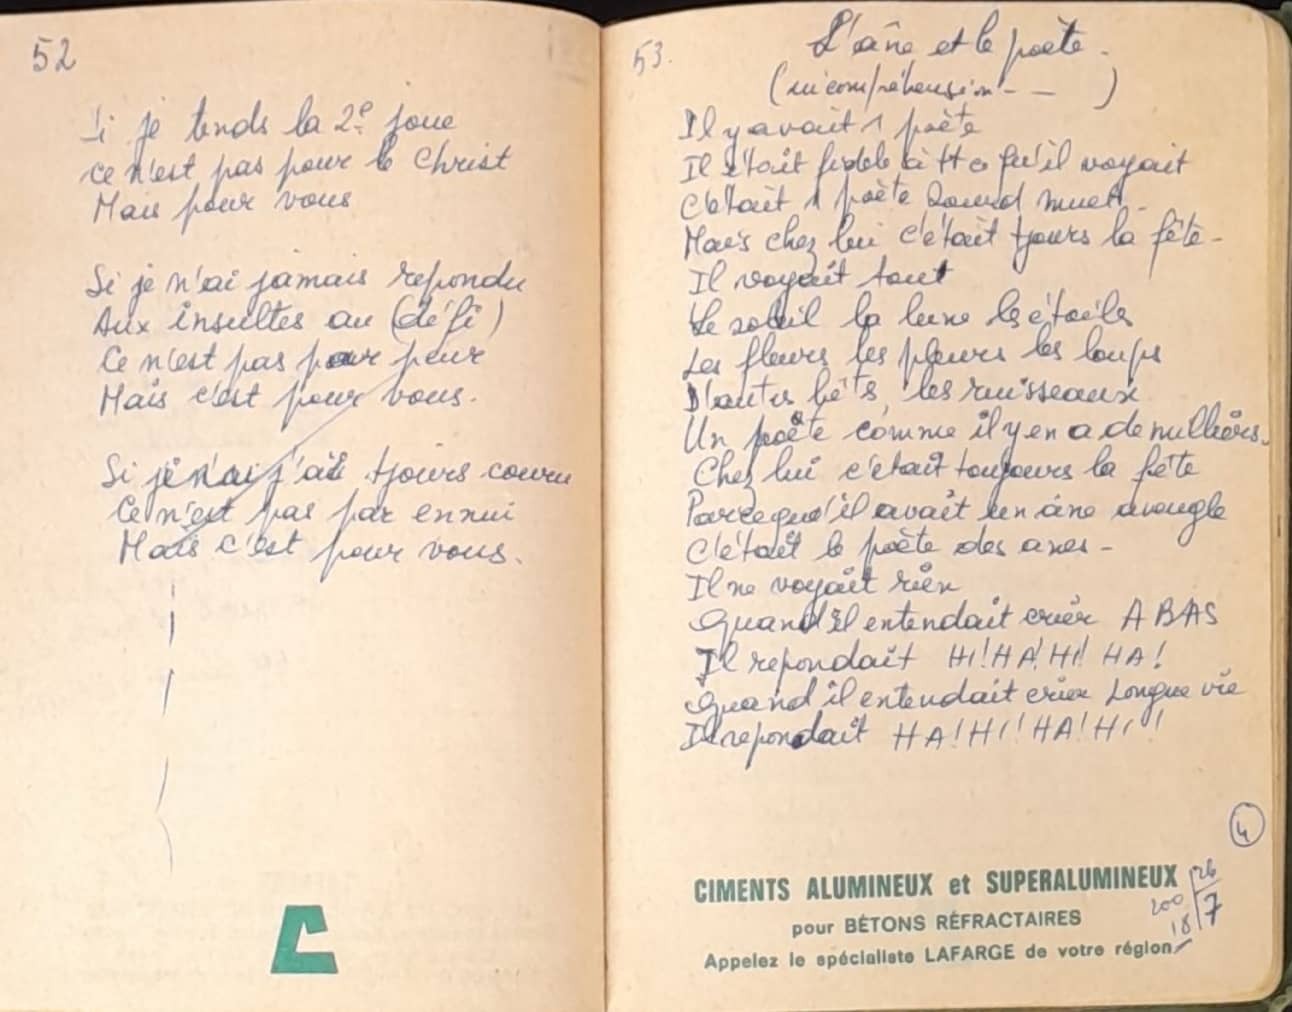 52
Si je tends la 2e joue
ce n'est pas pour le Christ
Mais pour vous
Si je n'ai jamais repondu
Aux insultes au (défi)
Ce n'est pas par peur
Mais c'est pour vous.
Si je n'ai j'ai tjours couru
Ce n'est pas par ennui
Mais c'est pour vous.
53.
L'âne et le poète.
(incompréhension - - - )
Il y avait 1 poète
Il était fidele à tt ce qu'il voyait
C'était 1 poète sourd muet.
Mais chez lui c'était tjours la fête -
Il voyait tout
Le soleil la lune les étoiles
Les fleurs les pleurs les loups
D'autres bêts, les ruisseaux
Un poète comme il y en a de milliers.
Chez lui c'était toujours la fête
Parceque'il avait un âne aveugle
C'était le poète des anes -
Il ne voyait rien
Quand il entendait crier A BAS
Il repondait HI! HA! HI! HA!
Quand il entendait crier Longue vie
Il repondait HA! HI! HA! HI!!
4
CIMENTS ALUMINEUX et SUPERALUMINEUX
pour BÉTONS RÉFRACTAIRES
Appelez le spécialiste LAFARGE de votre région
26
200
7
18